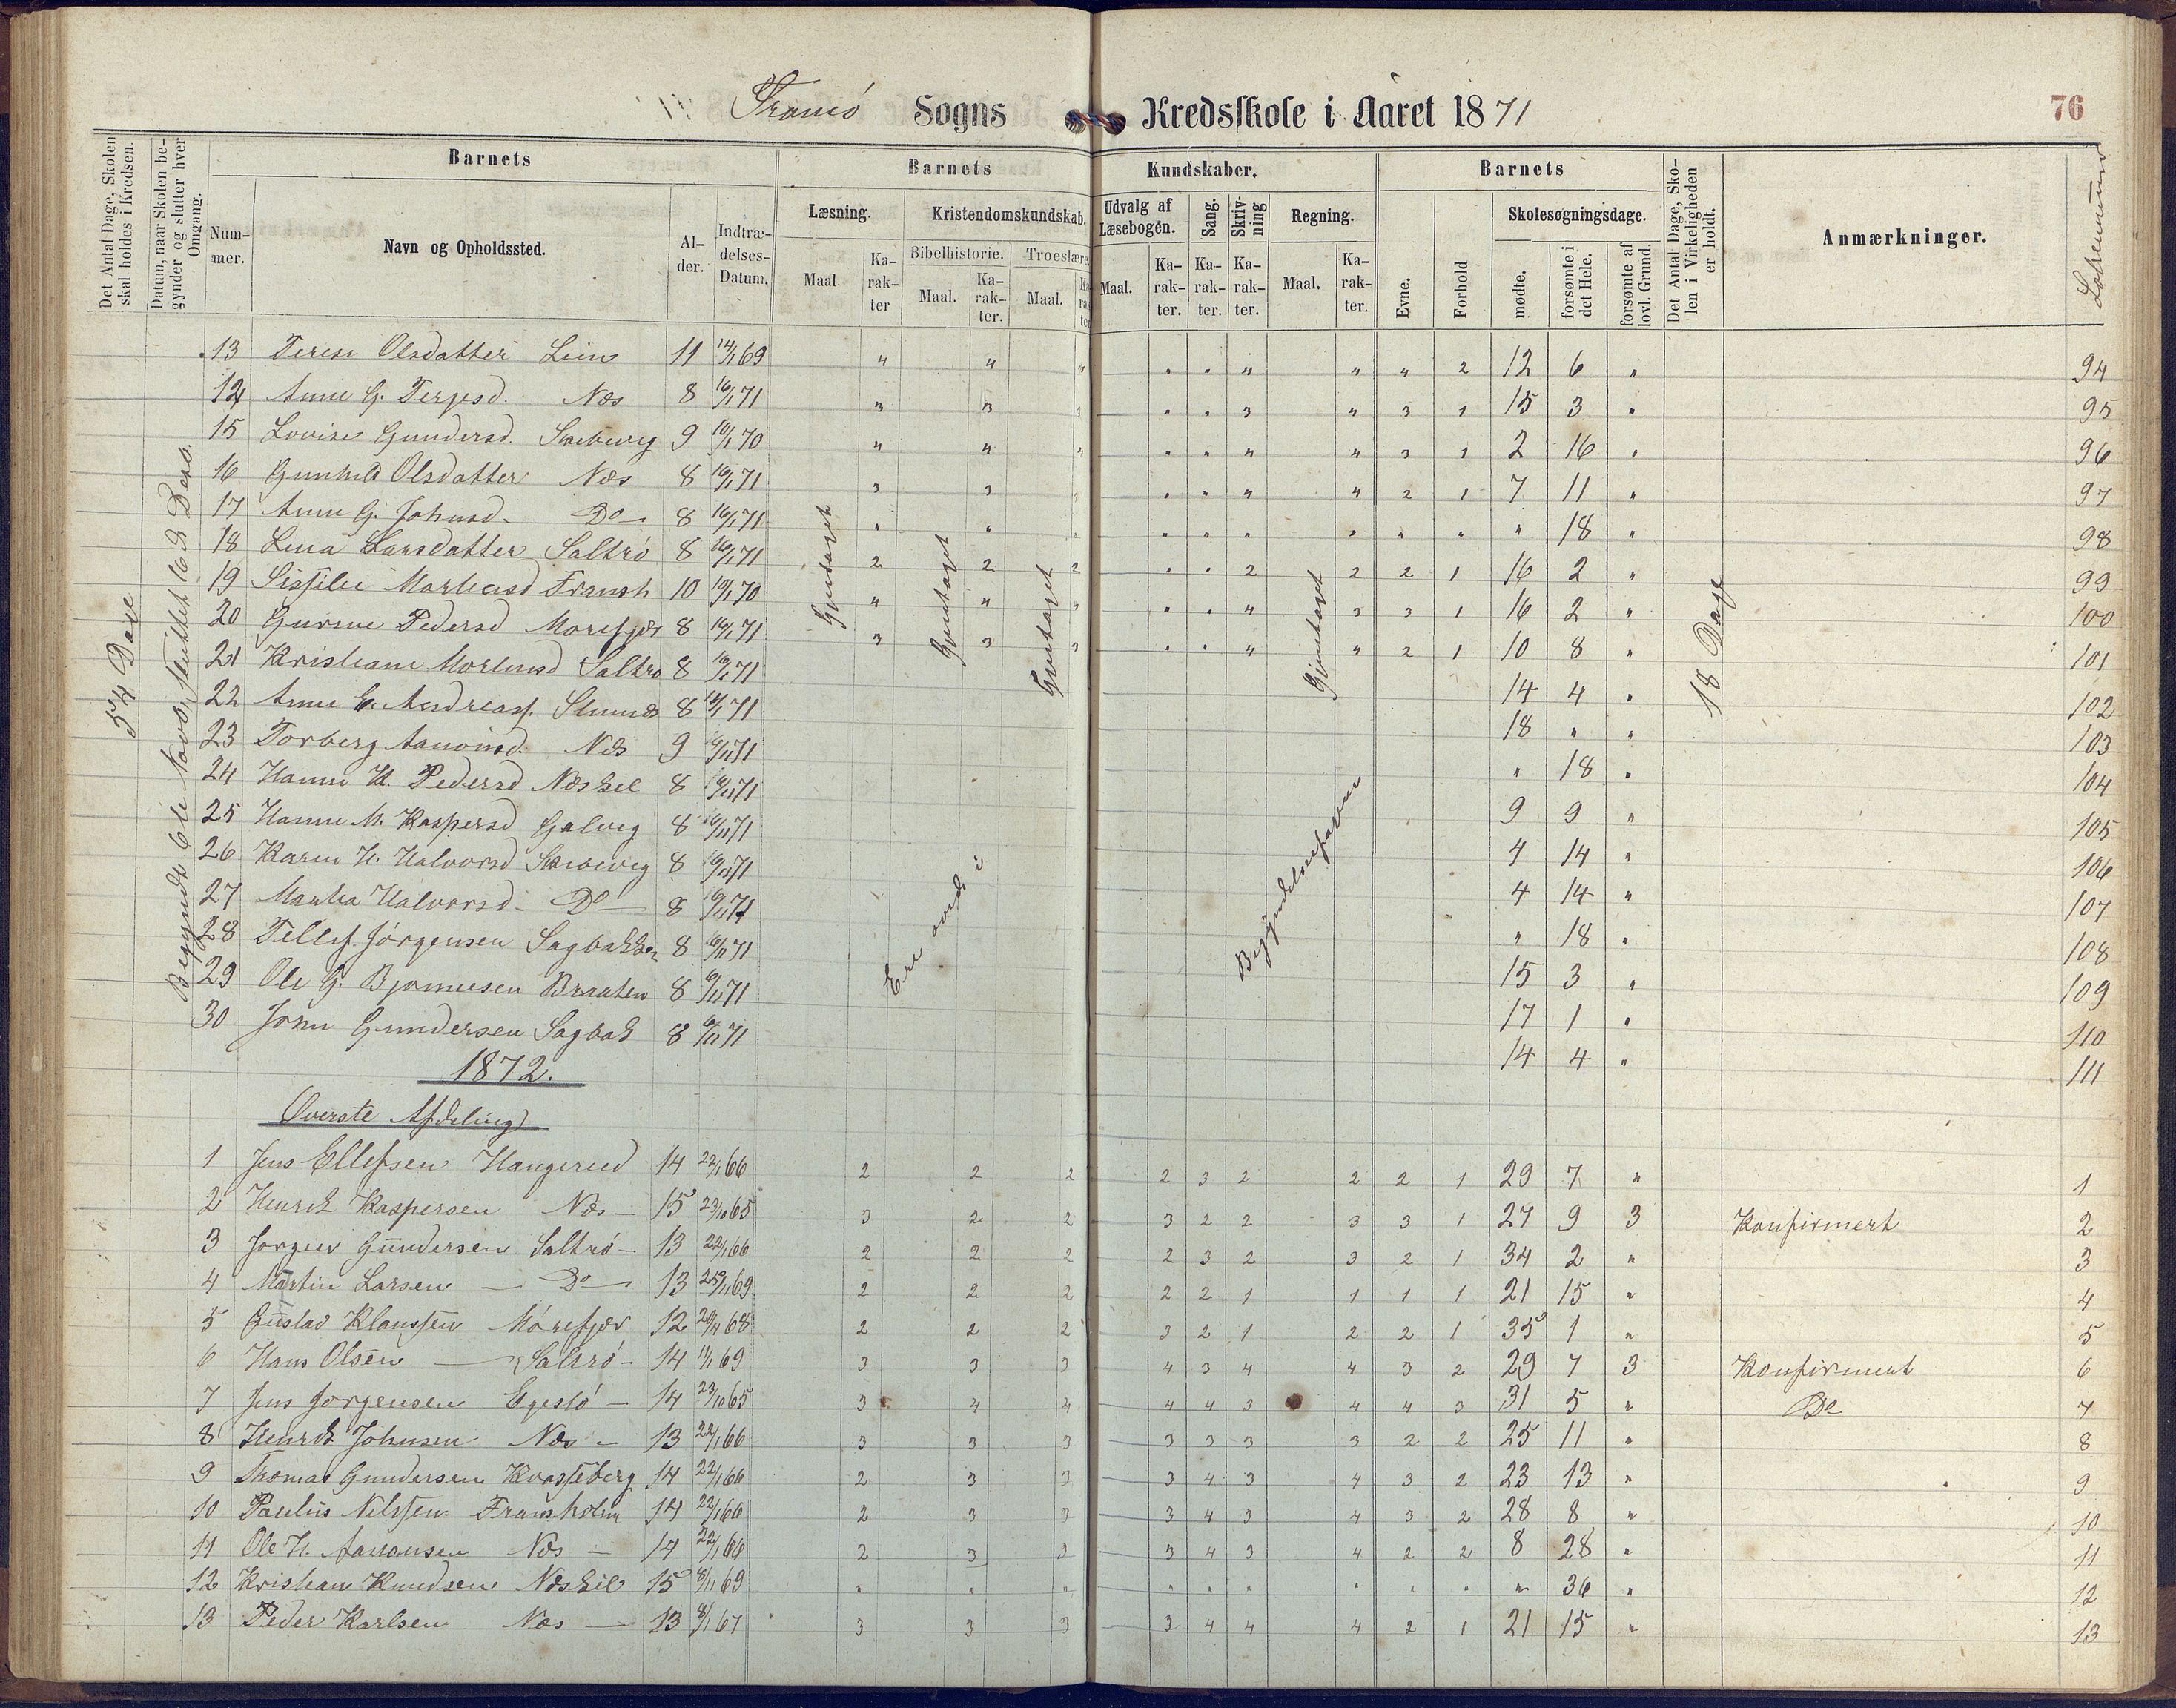 Tromö Sogns Kredsskole i Aaret 1871
76
Det Antal Dage, Skolen skal holdes i Kredsen.
Datum, naar Skolen begynder og slutter hver Omgang.
Barnets
Nummer.
Navn og Opholdssted.
Alder.
Indtrædelses-Datum.
Barnets Kundskaber.
Læsning.
Maal
Karakter
Kristendomskundskab.
Bibelhistorie.
Maal.
Karakter.
Troeslære
Maal.
Karakter
Udvalg af Læsebogen.
Maal.
Karakter.
Sang.
Karakter.
Skrivning
Karakter.
Regning.
Maal.
Karakter.
Barnets
Evne.
Forhold
Skolesøgningsdage.
mødte.
forsømte i det Hele.
forsømte af lovl. Grund.
Det Antal Dage, Skolen i Virkeligheden er holdt.
Anmærkninger.
Løbenumer
54 Dage
Begyndt 6te Novb, sluttet 16d Dess.
Gjentaget
Gjentaget
Gjentaget
Gjentaget
18 Dage
Ere oved i
Begyndelses
13 Terese Olsdatter Lien 11 14/1 69 " " " " " " " " 2 12 6 " 94
14 Anne G. Terjesd. Næs 8 16/1 71 3 3 3 " " 3 " 3 1 15 3 " 95
15 Lovise Gundersd. 9 10/1 70 " " " " " " " 3 1 2 16 " 96
16 Gunhild Olsdatter Næs 8 16/1 71 3 3 3 " " " " 2 1 7 11 " 97
17 Anne G. Johnsd. Do 8 16/1 71 " " " " " " " " " " 18 " 98
18 Lina Larsdatter Saltrö 8 16/1 71 2 2 2 " " 2 2 2 1 16 2 " 99
19 10 10/1 70 " " " " " " 3 3 1 16 2 " 100
20 Gurine Pedersd 8 16/1 71 3 3 3 " " " " 2 1 10 8 " 101
21 Kristiane Saltrö 8 71 14 4 " 102
22 Anne 8 71 18 " " 103
23 Torberg Aanonsd. Næs 9 6/11 71 " 18 " 104
24 Hanne K. Pedersd Næskil 8 6/11 71 9 9 " 105
25 Hanne M. Kaspersd Galvig 8 6/11 71 4 14 " 106
26 Karen H. Halvorsd 8 6/11 71 4 14 " 107
27 Martha Halvorsd Do 8 6/11 71 " 18 " 108
28 Tellef Jörgensen Sagbakken 8 6/11 71 15 3 " 109
29 Ole G. Bjornesen Braaten 8 6/11 71 17 1 " 110
30 John Gundersen Sagbak 8 6/11 71 14 4 " 111
1872.
Øverste Afdeling
1 Jens Ellefsen Haugerud 14 22/1 66 2 2 2 2 3 2 2 2 1 29 7 " 1
2 Henrik Kaspersen Næs 15 23/10 65 3 2 2 3 2 2 3 3 1 27 9 3 Konfirmert 2
3 Jörgen Gundersen Saltrö 13 22/1 66 2 2 2 2 3 2 3 2 1 34 2 " 3
4 Martin Larsen Do 13 25/1 69 2 2 2 2 2 1 1 1 1 21 15 " 4
5 Gustav Klaussen Mörefjær 12 68 2 2 2 3 2 1 2 2 1 35 1 " 5
6 Hans Olsen Saltrö 14 11/1 69 3 3 3 4 3 4 4 3 2 29 7 3 Konfirmert 6
7 Jens Jorgensen 14 23/10 65 3 4 4 4 4 3 4 4 3 31 5 " Do 7
8 Henrik Johnsen Næs 13 22/1 66 3 3 3 3 3 3 3 2 2 25 11 " 8
9 Thomas Gundersen Kvasseberg 14 22/1 66 2 3 3 3 4 3 4 3 2 23 13 " 9
10 Paulus Nilssen Fransholm 14 22/1 66 2 3 3 3 4 3 4 3 2 28 8 " 10
11 Ole H. Aanonsen Næs 14 22/1 66 2 3 3 3 4 3 4 2 2 8 28 " 11
12 Kristian Knudsen Næskil 15 8/11 69 " " " " " " " " " " 36 " 12
13 Peder Karlsen Næs 13 8/1 67 3 3 3 3 4 4 4 2 1 21 15 " 13